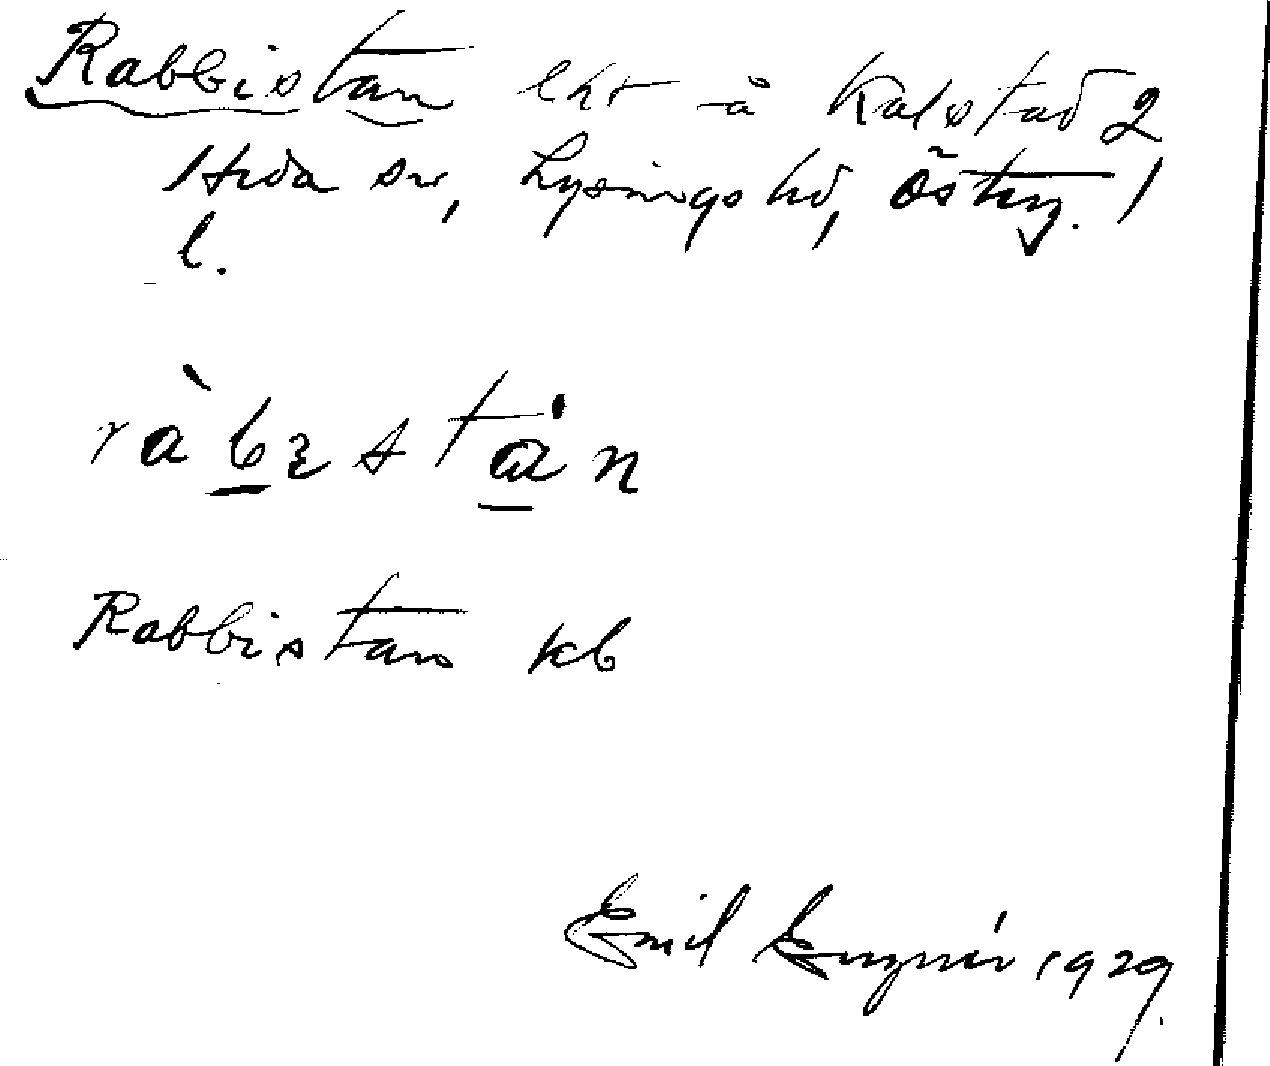 Rabbistan lht å Kalstad 2
Heda sn, Lysings hd, Östog. l
l.
ràbistån
Rabbistan kb
Emil 1929.